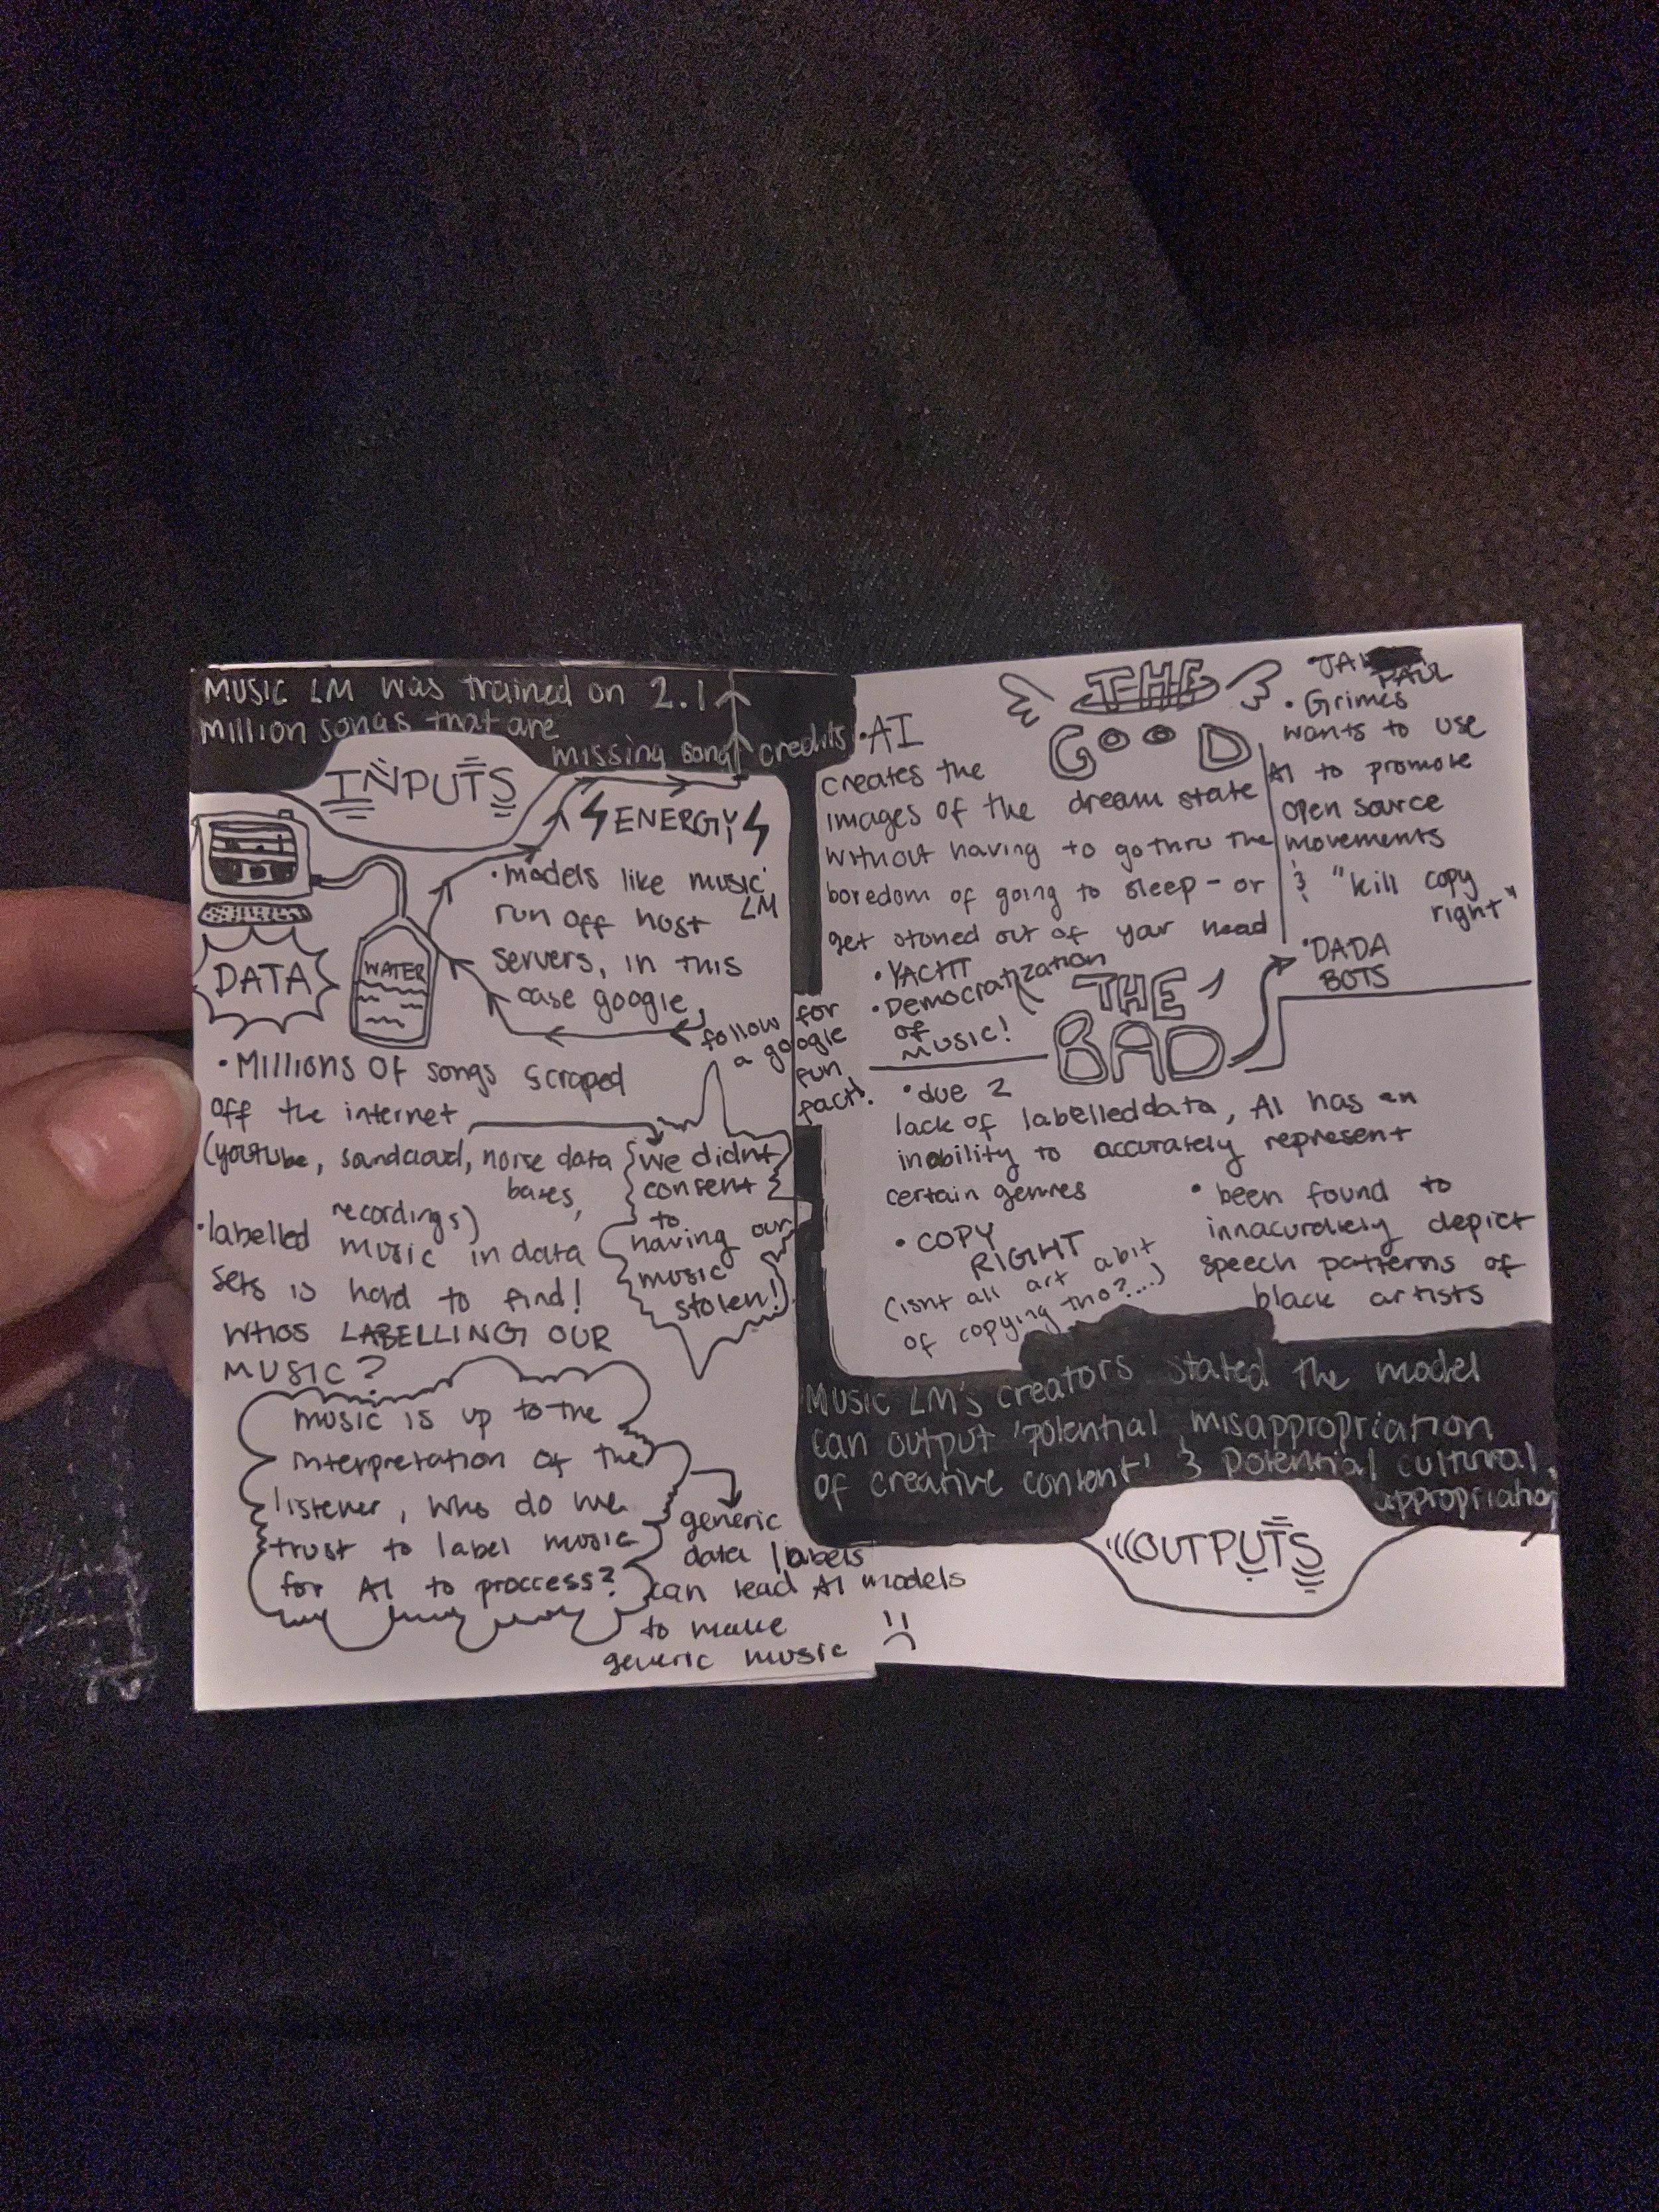 MUSIC LM was trained on 2.1
million songs that are
missing song credits
INPUTS
ENERGY
• models like music
LM
run off host
servers, in this
case google
DATA
WATER
follow for
a google
fun
fact!
• Millions of songs scraped
off the internet
(youtube, soundcloud, noise data
bases,
recordings)
we didnt
consent
to
having our
music
stolen!
• labelled music in data
sets is hard to find!
WHOS LABELLING OUR
MUSIC?
music is up to the
interpretation of the
listener, who do we
trust to label music
for AI to proccess?
generic
data labels
can lead AI models
to make
generic music
THE
GOOD
• AI
creates the
images of the dream state
without having to go thru the
boredom of going to sleep - or
get stoned out of your head
• YACHT
• Democratization
of
music!
• JAI
PAUL
• Grimes
wants to use
AI to promote
open source
movements
& "kill copy
right"
• DADA
BOTS
THE
BAD
• due 2
lack of labelled data, AI has an
inability to accurately represent
certain genres
• COPY
RIGHT
(isnt all art a bit
of copying tho?...)
• been found to
innacurately depict
speech patterns of
black artists
Music LM's creators stated the model
can output 'potential misappropriation
of creative content' & potential cultural
appropriation
OUTPUTS